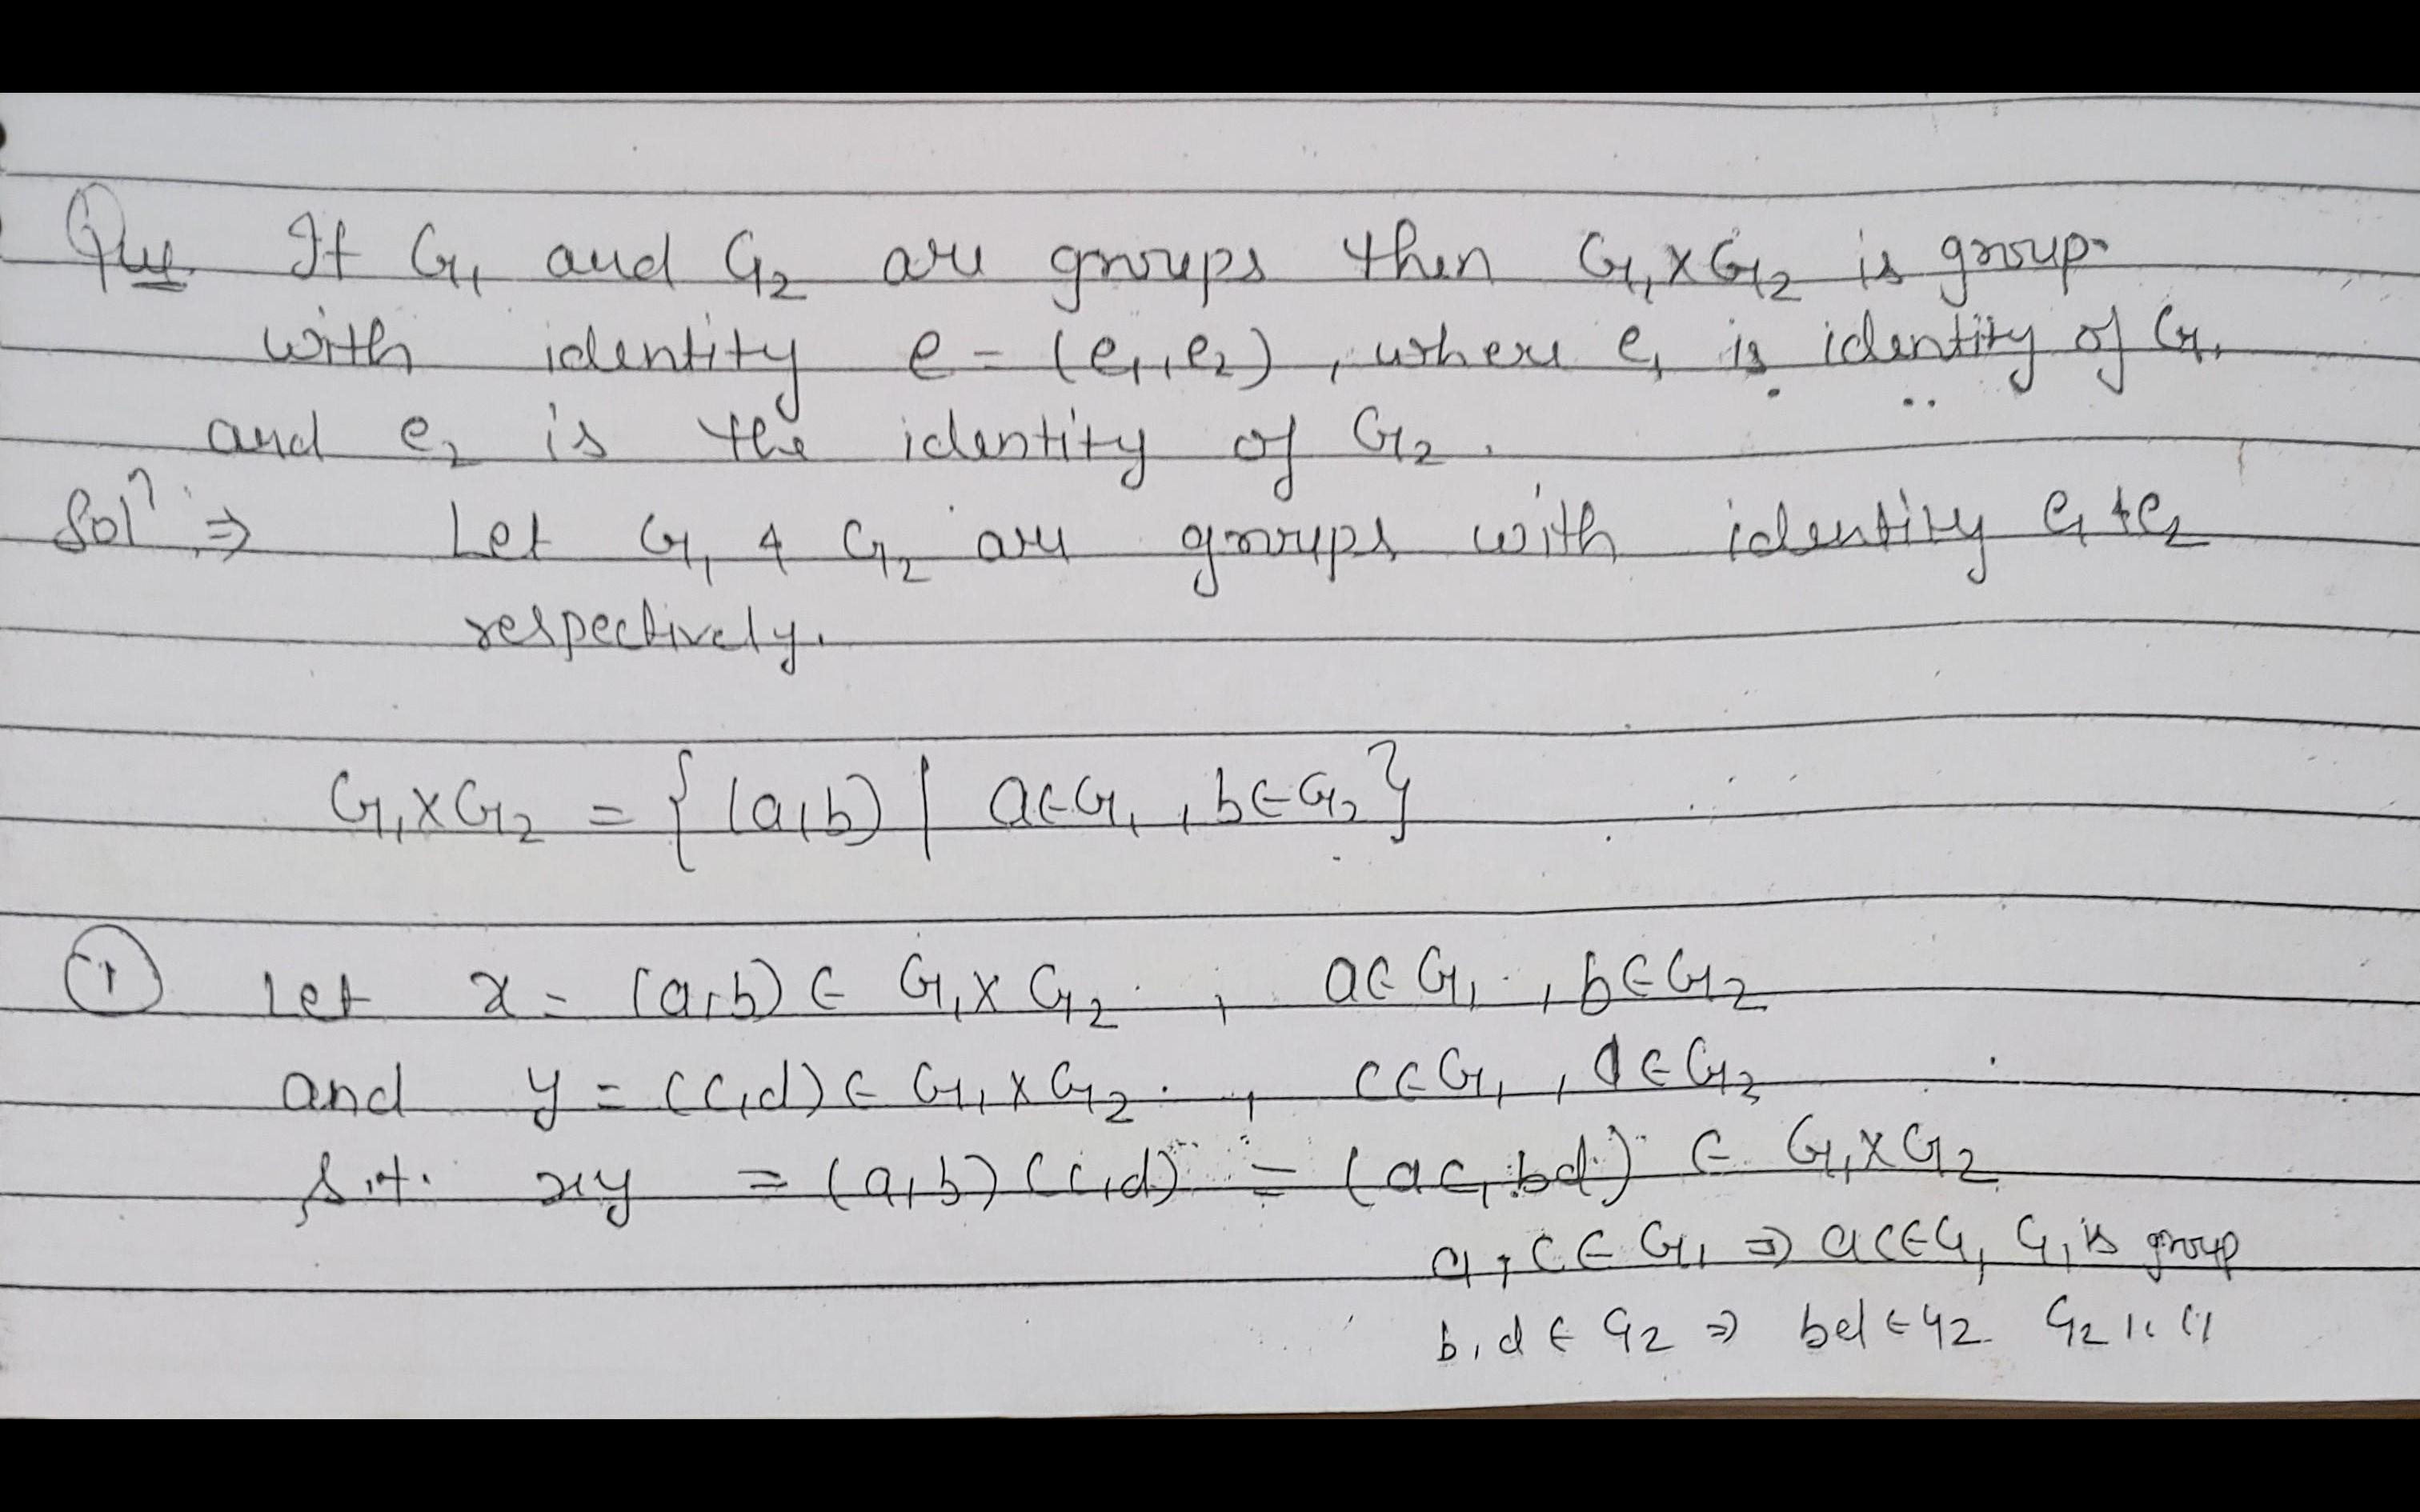 Que. If G₁ and G₂ are groups then G₁×G₂ is group
with identity e = (e₁,e₂), where e₁ is identity of G₁
and e₂ is the identity of G₂.
Solⁿ ⇒ Let G₁ & G₂ are groups with identity e₁ & e₂
respectively.
G₁×G₂ = { (a,b) | a∈G₁, b∈G₂ }
① Let x = (a,b) ∈ G₁×G₂, a∈G₁, b∈G₂
and y = (c,d) ∈ G₁×G₂, c∈G₁, d∈G₂
s.t. xy = (a,b) (c,d) = (ac, bd) ∈ G₁×G₂
a, c ∈ G₁ ⇒ ac∈G₁ G₁ is group
b, d ∈ G₂ ⇒ bd∈G₂ G₂ " "